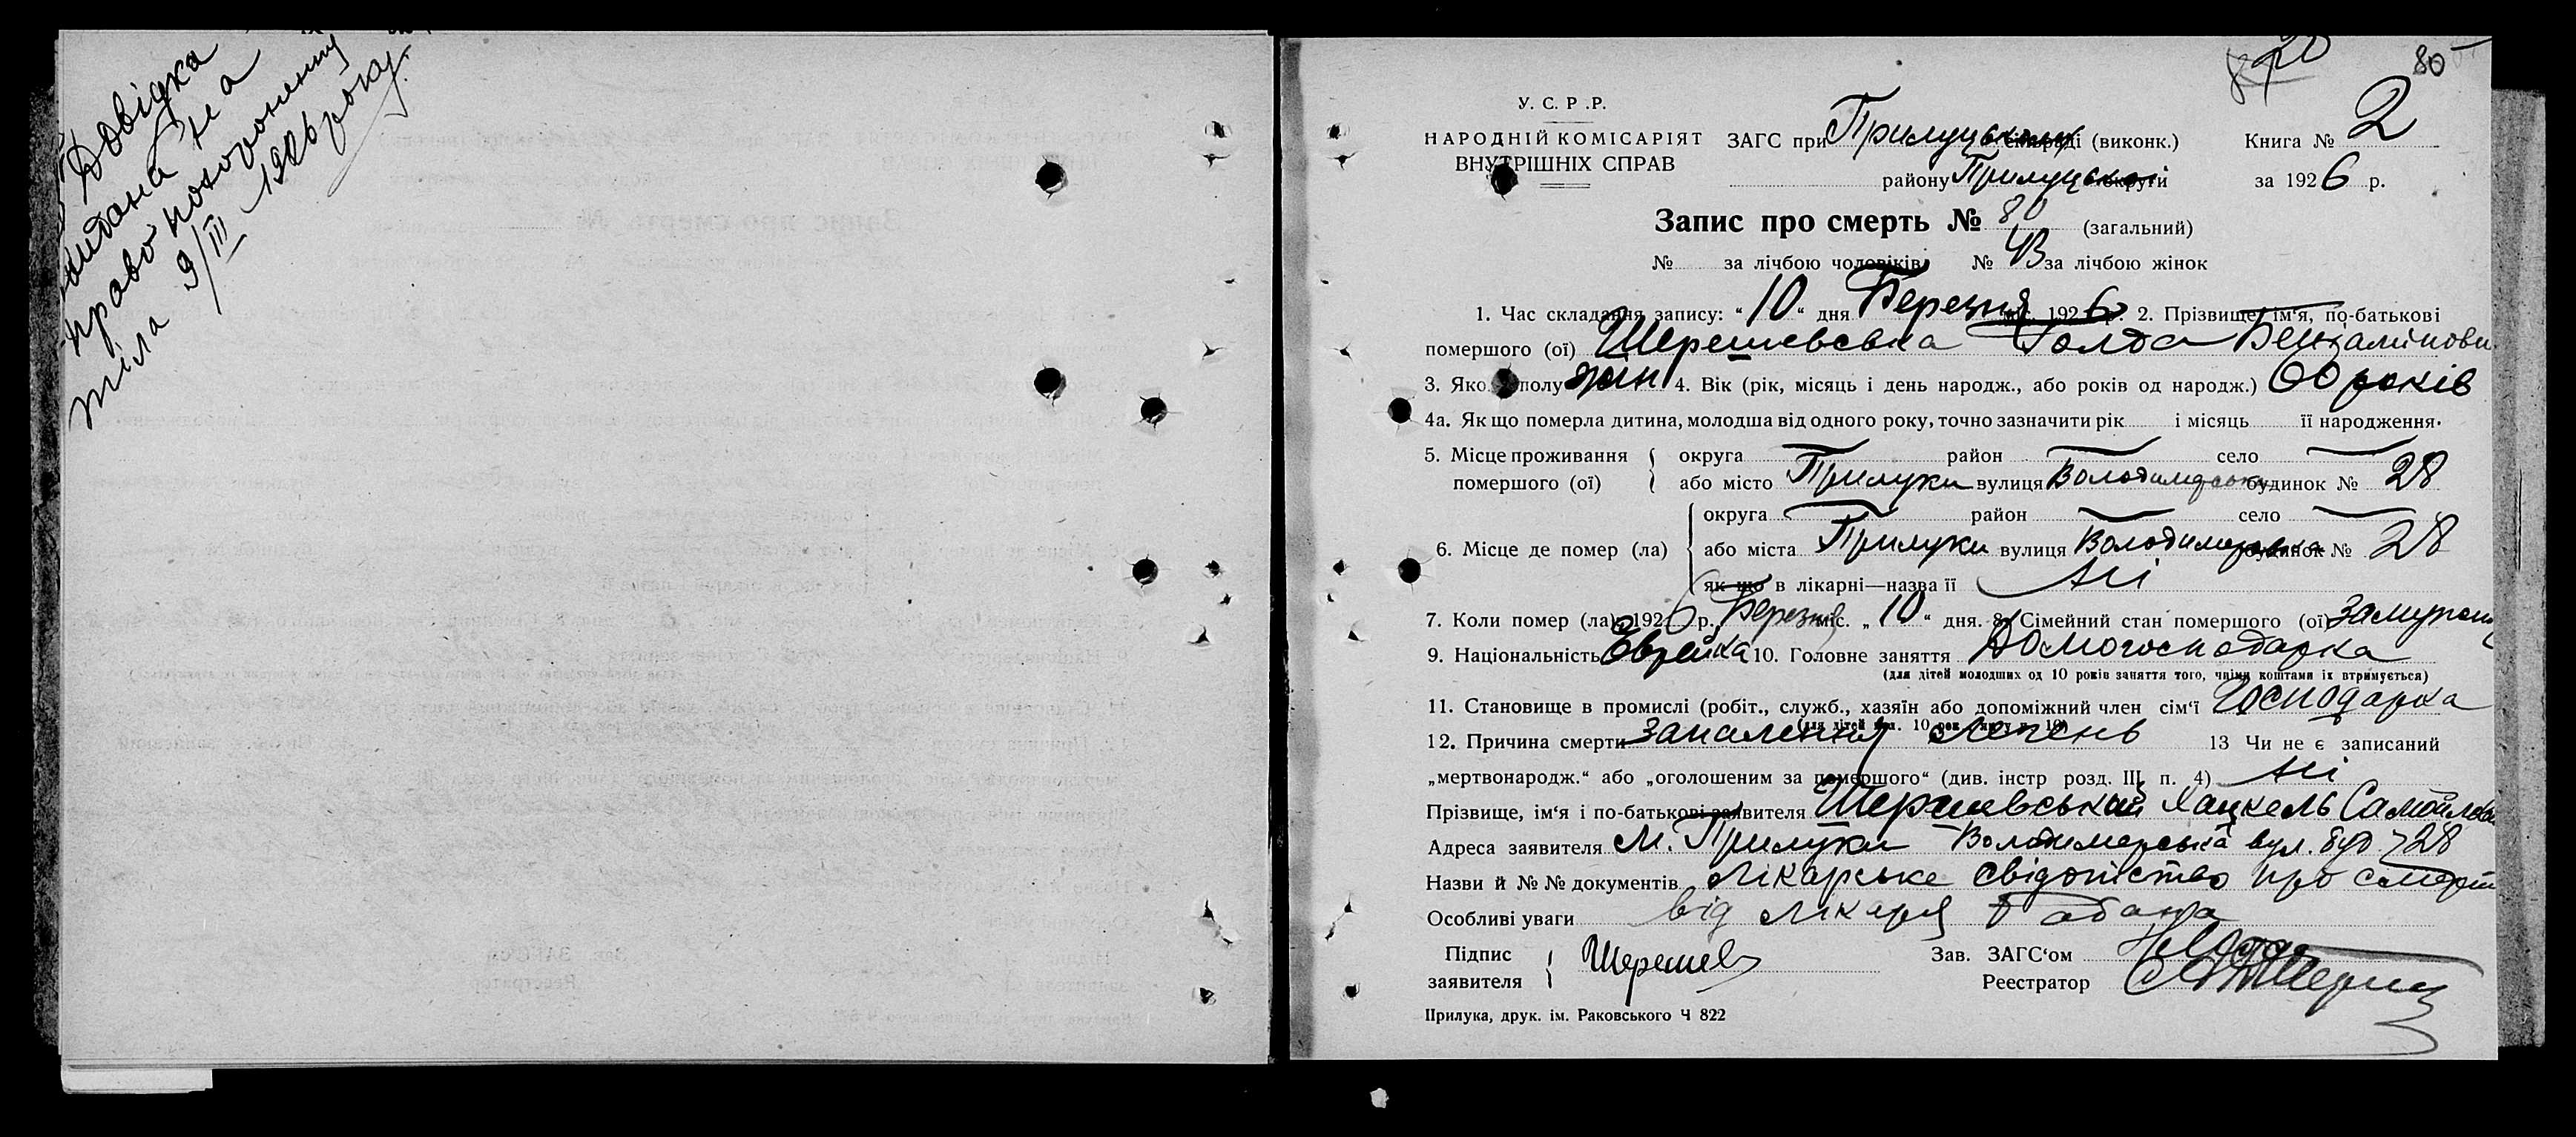 Довідка
видана на
право похоронення
тіла 9/III 1926 року.
80
У. С. Р. Р.
НАРОДНІЙ КОМІСАРІЯТ
ВНУТРІШНІХ СПРАВ
ЗАГС при Прилуцькому (виконк.) Книга № 2
району Прилуцької округи за 1926 р.
Запис про смерть № 80 (загальний)
№ за лічбою чоловіків № 43 за лічбою жінок
1. Час складання запису: „10“ дня Березня міс. 1926 р. 2. Прізвище, ім‘я, по-батькові
помершого (ої) Шерешевська Голда Бенъямінови
3. Якого полу жін 4. Вік (рік, місяць і день народж., або років од народж.) 60 років
4а. Як що померла дитина, молодша від одного року, точно зазначити рік і місяць її народження.
5. Місце проживання округа район село
помершого (ої) або місто Прилуки вулиця Володимирська будинок № 28
округа район село
6. Місце де помер (ла) або міста Прилуки вулиця Володимирська будинок № 28
як що в лікарні—назва її Ні
7. Коли помер (ла): 1926 р. Березня міс. „10“ дня. 8. Сімейний стан помершого (ої) Замужня
9. Національність Єврейка 10. Головне заняття Домогосподарка
(для дітей молодших од 10 років заняття того, чиїми коштами їх втримується)
11. Становище в промислі (робіт., служб., хазяїн або допоміжний член сім‘ї Господарка
12. Причина смерти Запалення легень 13 Чи не є записаний
„мертвонародж.“ або „оголошеним за помершого“ (див. інстр розд. III, п. 4) Ні
Прізвище, ім‘я і по-батькові заявителя Шерешевський Хацкель Самойлови
Адреса заявителя м. Прилуки Володимирська вул. буд 28
Назви й №№ документів Лікарське свідоцтво про смерть
Особливі уваги від лікаря
Підпис Шерешев Зав. ЗАГС‘ом
заявителя Реестратор
Прилука, друк. ім. Раковського Ч 822